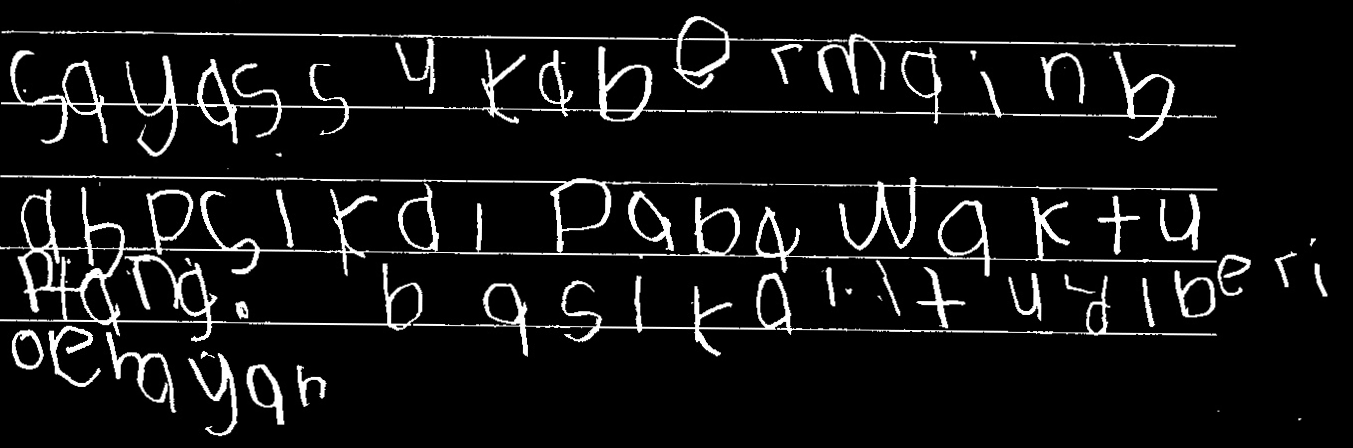 sayass ukabermainb
ahpcikdi Pabawaktu
ptang. basika itudiberi
oehayan